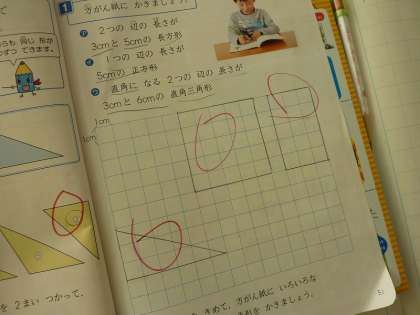 1 方がん紙に かきましょう。
㋐ 2つの 辺の 長さが
3cmと 5cmの 長方形
㋑ 1つの 辺の 長さが
5cmの 正方形
㋒ 直角に なる 2つの 辺の 長さが
3cmと 6cmの 直角三角形
1cm
1cm
同じ 形が
できます。
を 2まい つかって、
きめて、方がん紙に いろいろな
かきましょう。
51